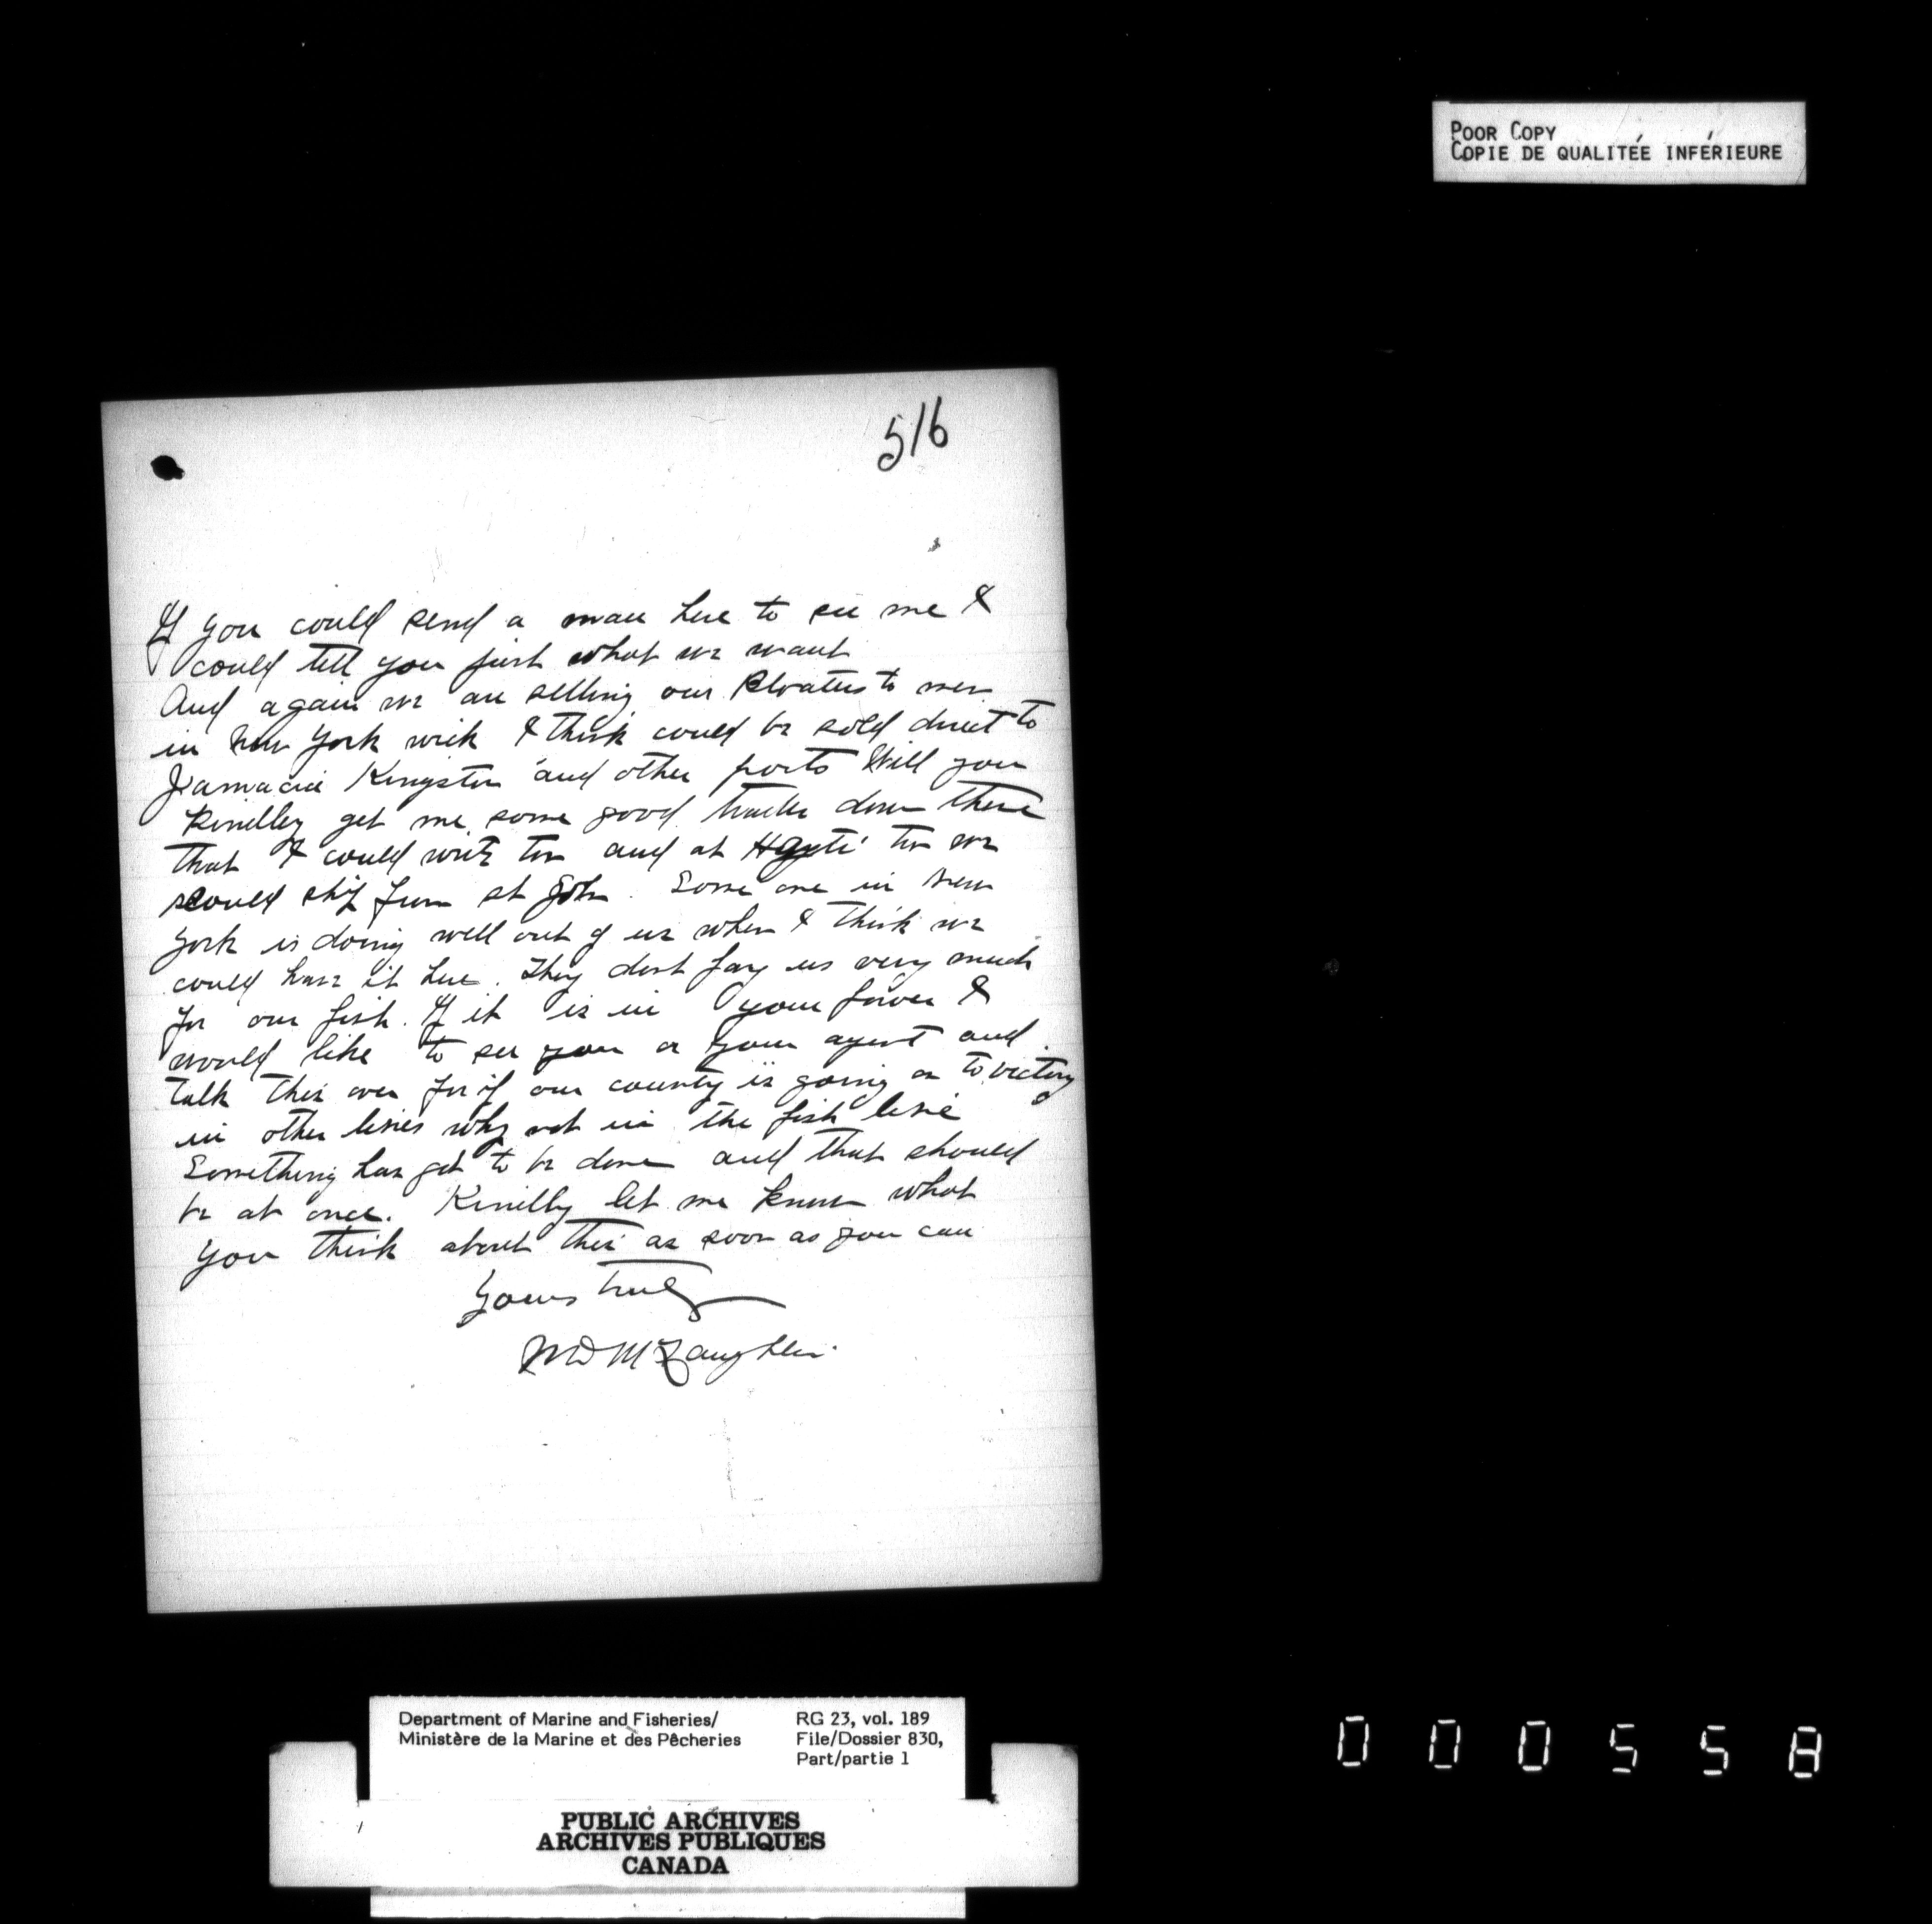 POOR COPY
COPIE DE QUALITÉE INFÉRIEURE
516
If you could send a man here to see me I
could tell you just what we want
And again we are selling our Bloaters to men
in New York wich I think could be sold direct to
Jamacia Kingston and other ports Will you
Kindley get me some good trader down there
that I could write too and at Hayti too we
could ship from St John. Some one in New
York is doing well out of us when I think we
could have it here. They dont pay us very much
for our fish. If it is in your power I
would like to see you or your agent and
talk this over for if our country is going on to victory
in other lines why not in the fish line
Something has got to be done and that should
be at once. Kindly let me know what
you think about this as soon as you can
Yours truly
McLaughlin.
Department of Marine and Fisheries/
Ministère de la Marine et des Pêcheries
RG 23, vol. 189
File/Dossier 830,
Part/partie 1
PUBLIC ARCHIVES
ARCHIVES PUBLIQUES
CANADA
000558